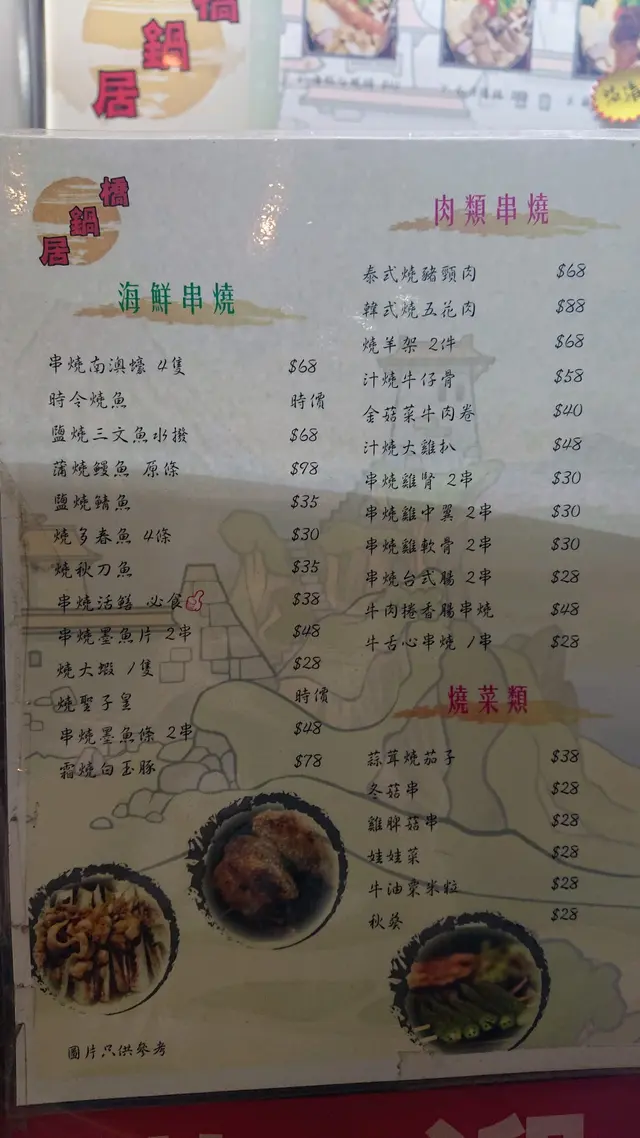 橋
鍋
居
橋
鍋
居
海鮮串燒
串燒南澳蠔 4隻 $68
時令燒魚 時價
鹽燒三文魚水撥 $68
蒲燒鰻魚 原條 $98
鹽燒鯖魚 $35
燒多春魚 4條 $30
燒秋刀魚 $35
串燒活鱔 必食 $38
串燒墨魚片 2串 $48
燒大蝦 1隻 $28
燒聖子皇 時價
串燒墨魚條 2串 $48
霜燒白玉豚 $78
圖片只供參考
肉類串燒
泰式燒豬頸肉 $68
韓式燒五花肉 $88
燒羊架 2件 $68
汁燒牛仔骨 $58
金菇菜牛肉卷 $40
汁燒大雞扒 $48
串燒雞腎 2串 $30
串燒雞中翼 2串 $30
串燒雞軟骨 2串 $30
串燒台式腸 2串 $28
牛肉捲香腸串燒 $48
牛舌心串燒 1串 $28
燒菜類
蒜茸燒茄子 $38
冬菇串 $28
雞脾菇串 $28
娃娃菜 $28
牛油粟米粒 $28
秋葵 $28